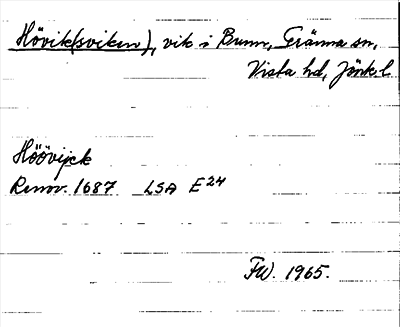 Hövik(sviken), vik i Bunn, Gränna sn,
Vista hd, Jönk.l.
Höövijck
Renov. 1687 LSA E24
FW. 1965.